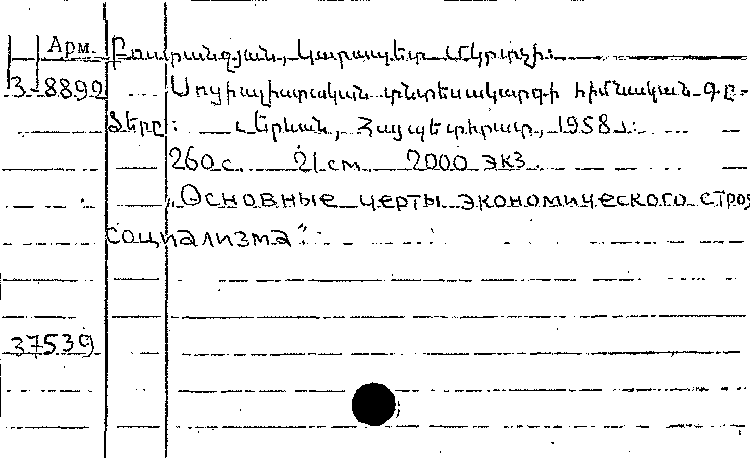 Арм. Բոստանջյան, Կարապետ Մկրտչի:
3-8890 Սոցիալիստական տնտեսակարգի հիմնական գը-
ծերը: Երևան, Հայպետհրատ, 1958:
260 с. 21 см 2000 экз.
„Основные черты экономического строя
социализма“.
37539